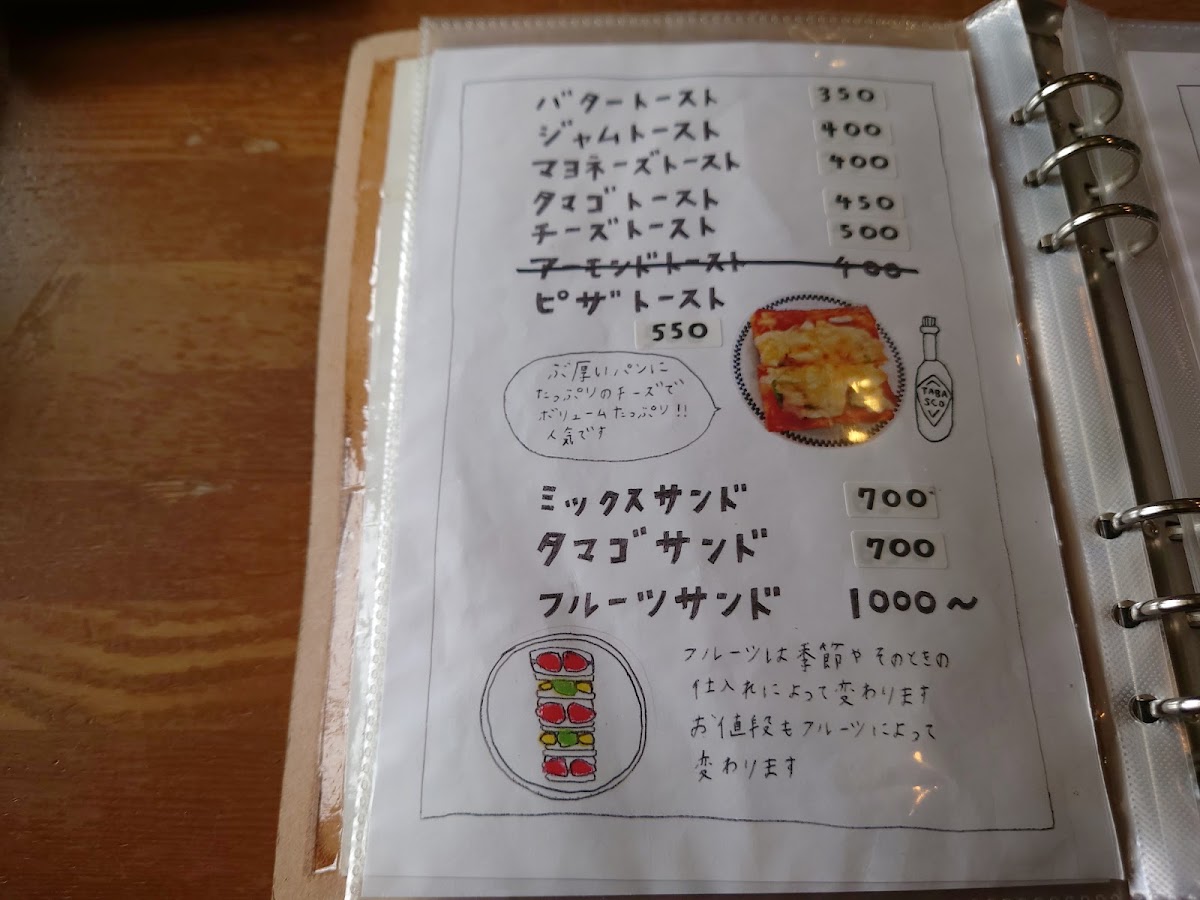 バタートースト 350
ジャムトースト 400
マヨネーズトースト 400
タマゴトースト 450
チーズトースト 500
アーモンドトースト 400
ピザトースト
550
ぶ厚いパンに
たっぷりのチーズで
ボリュームたっぷり!!
人気です
TABA
SCO
ミックスサンド 700
タマゴサンド 700
フルーツサンド 1000～
フルーツは季節やそのときの
仕入れによって変わります
お値段もフルーツによって
変わります